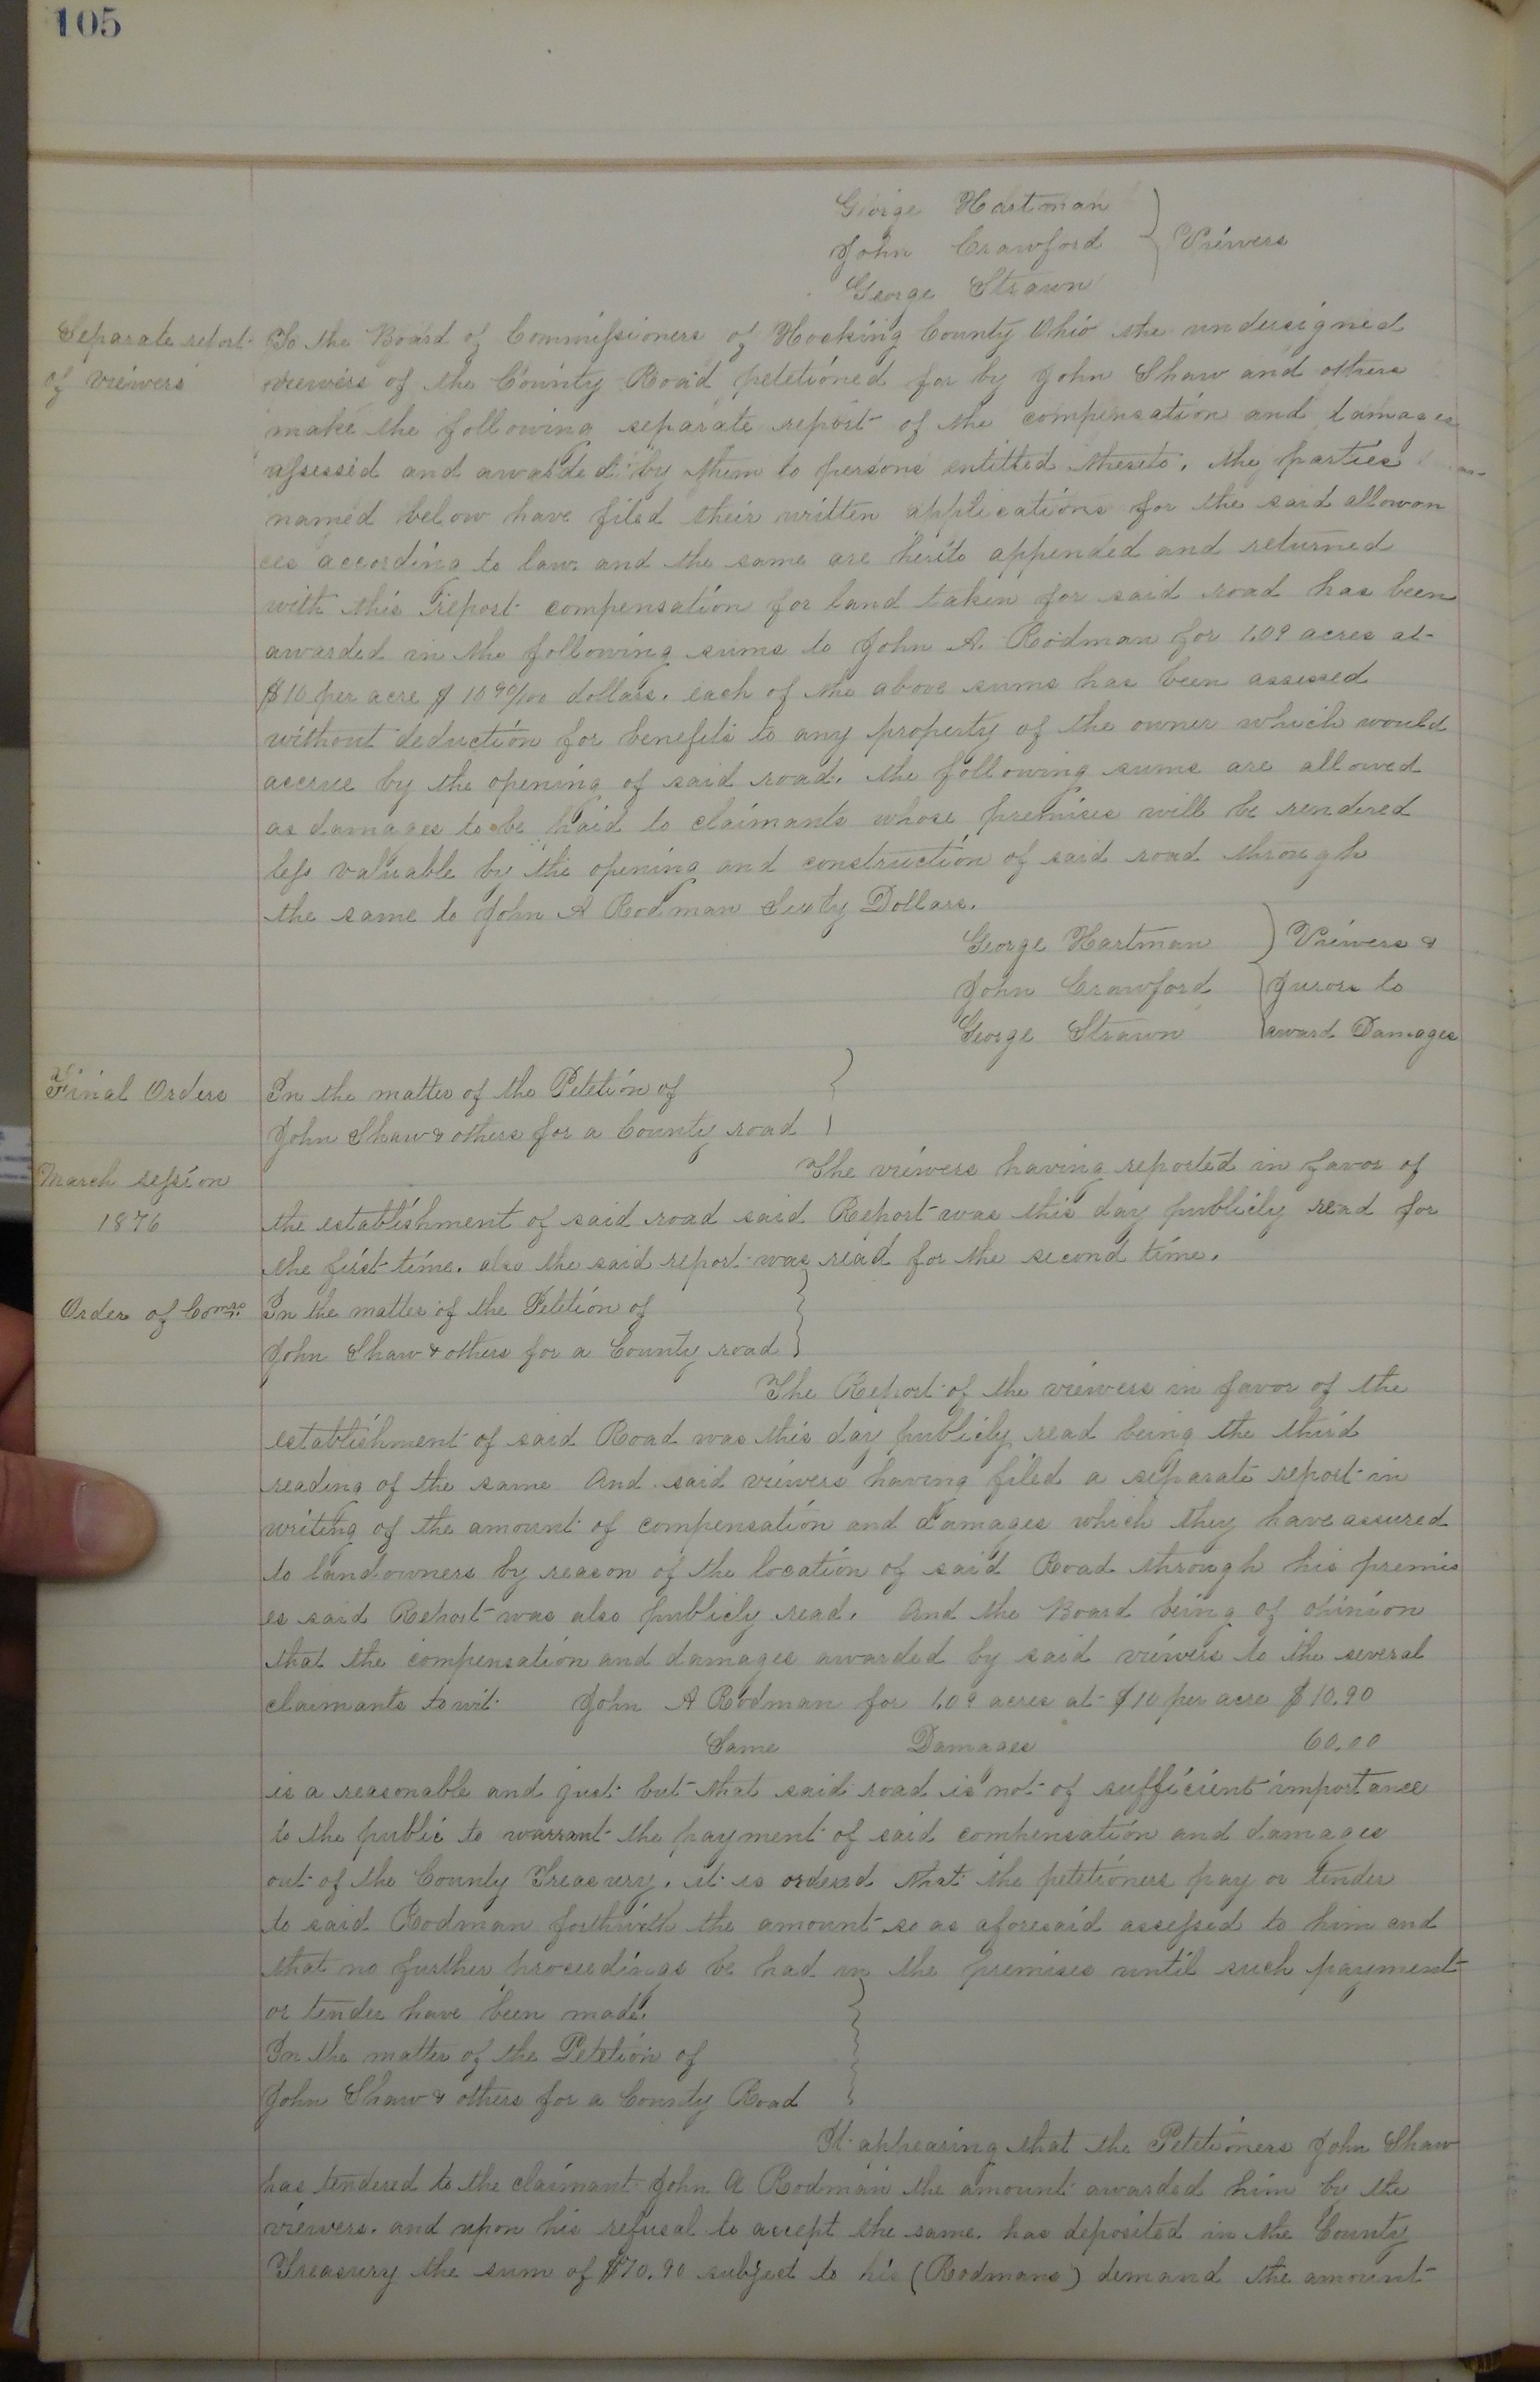 105
George Hartman
John Crawford } Viewers
George Strawn
Separate report of viewers
To the Board of Commissioners of Hocking County Ohio the undersigned
viewers of the County Road petetioned for by John Shaw and others
make the following separate report of the compensation and damages
assessed and awarded by them to persons entitled thereto. the parties
named below have filed their written applications for the said allowan
ces according to law and the same are hereto appended and returned
with this report compensation for land taken for said road has been
awarded in the following sums to John A. Rodman for 1.09 acres at
$10 per acre $ 10 90/100 dollars. each of the above sums has been assessed
without deduction for benefits to any property of the owner which would
accrue by the opening of said road. the following sums are allowed
as damages to be paid to claimants whose premises will be rendered
less valuable by the opening and construction of said road through
the same to John A Rodman Sixty Dollars.
George Hartman } Viewers &
John Crawford } Jurors to
George Strawn } award Damages
Final Orders
In the matter of the Petetion of
John Shaw & others for a County road }
March session
1876
The viewers having reported in favor of
the establishment of said road said Report was this day publicly read for
the first time. also the said report was read for the second time.
Order of Comrs.
In the matter of the Petetion of
John Shaw & others for a County road }
The Report of the viewers in favor of the
establishment of said Road was this day publicly read being the third
reading of the same And said viewers having filed a separate report in
writing of the amount of compensation and damages which they have assured
to landowners by reason of the location of said Road through his premis
es said Report was also publicly read. And the Board being of opinion
that the compensation and damages awarded by said viewers to the several
claimants to wit John A Rodman for 1.09 acres at $10 per acre $10.90
Same Damages 60.00
is a reasonable and just but that said road is not of sufficient importance
to the public to warrant the payment of said compensation and damages
out of the County Treasury. it is ordered that the petetioners pay or tender
to said Rodman forthwith the amount so as aforesaid assessed to him and
that no further proceedings be had in the premises until such payment
or tender have been made.
In the matter of the Petetion of
John Shaw & others for a County Road }
It appearing that the Petetioners John Shaw
has tendered to the claimant John A Rodman the amount awarded him by the
viewers. and upon his refusal to accept the same. has deposited in the County
Treasury the sum of $70.90 subject to his (Rodmans) demand the amount